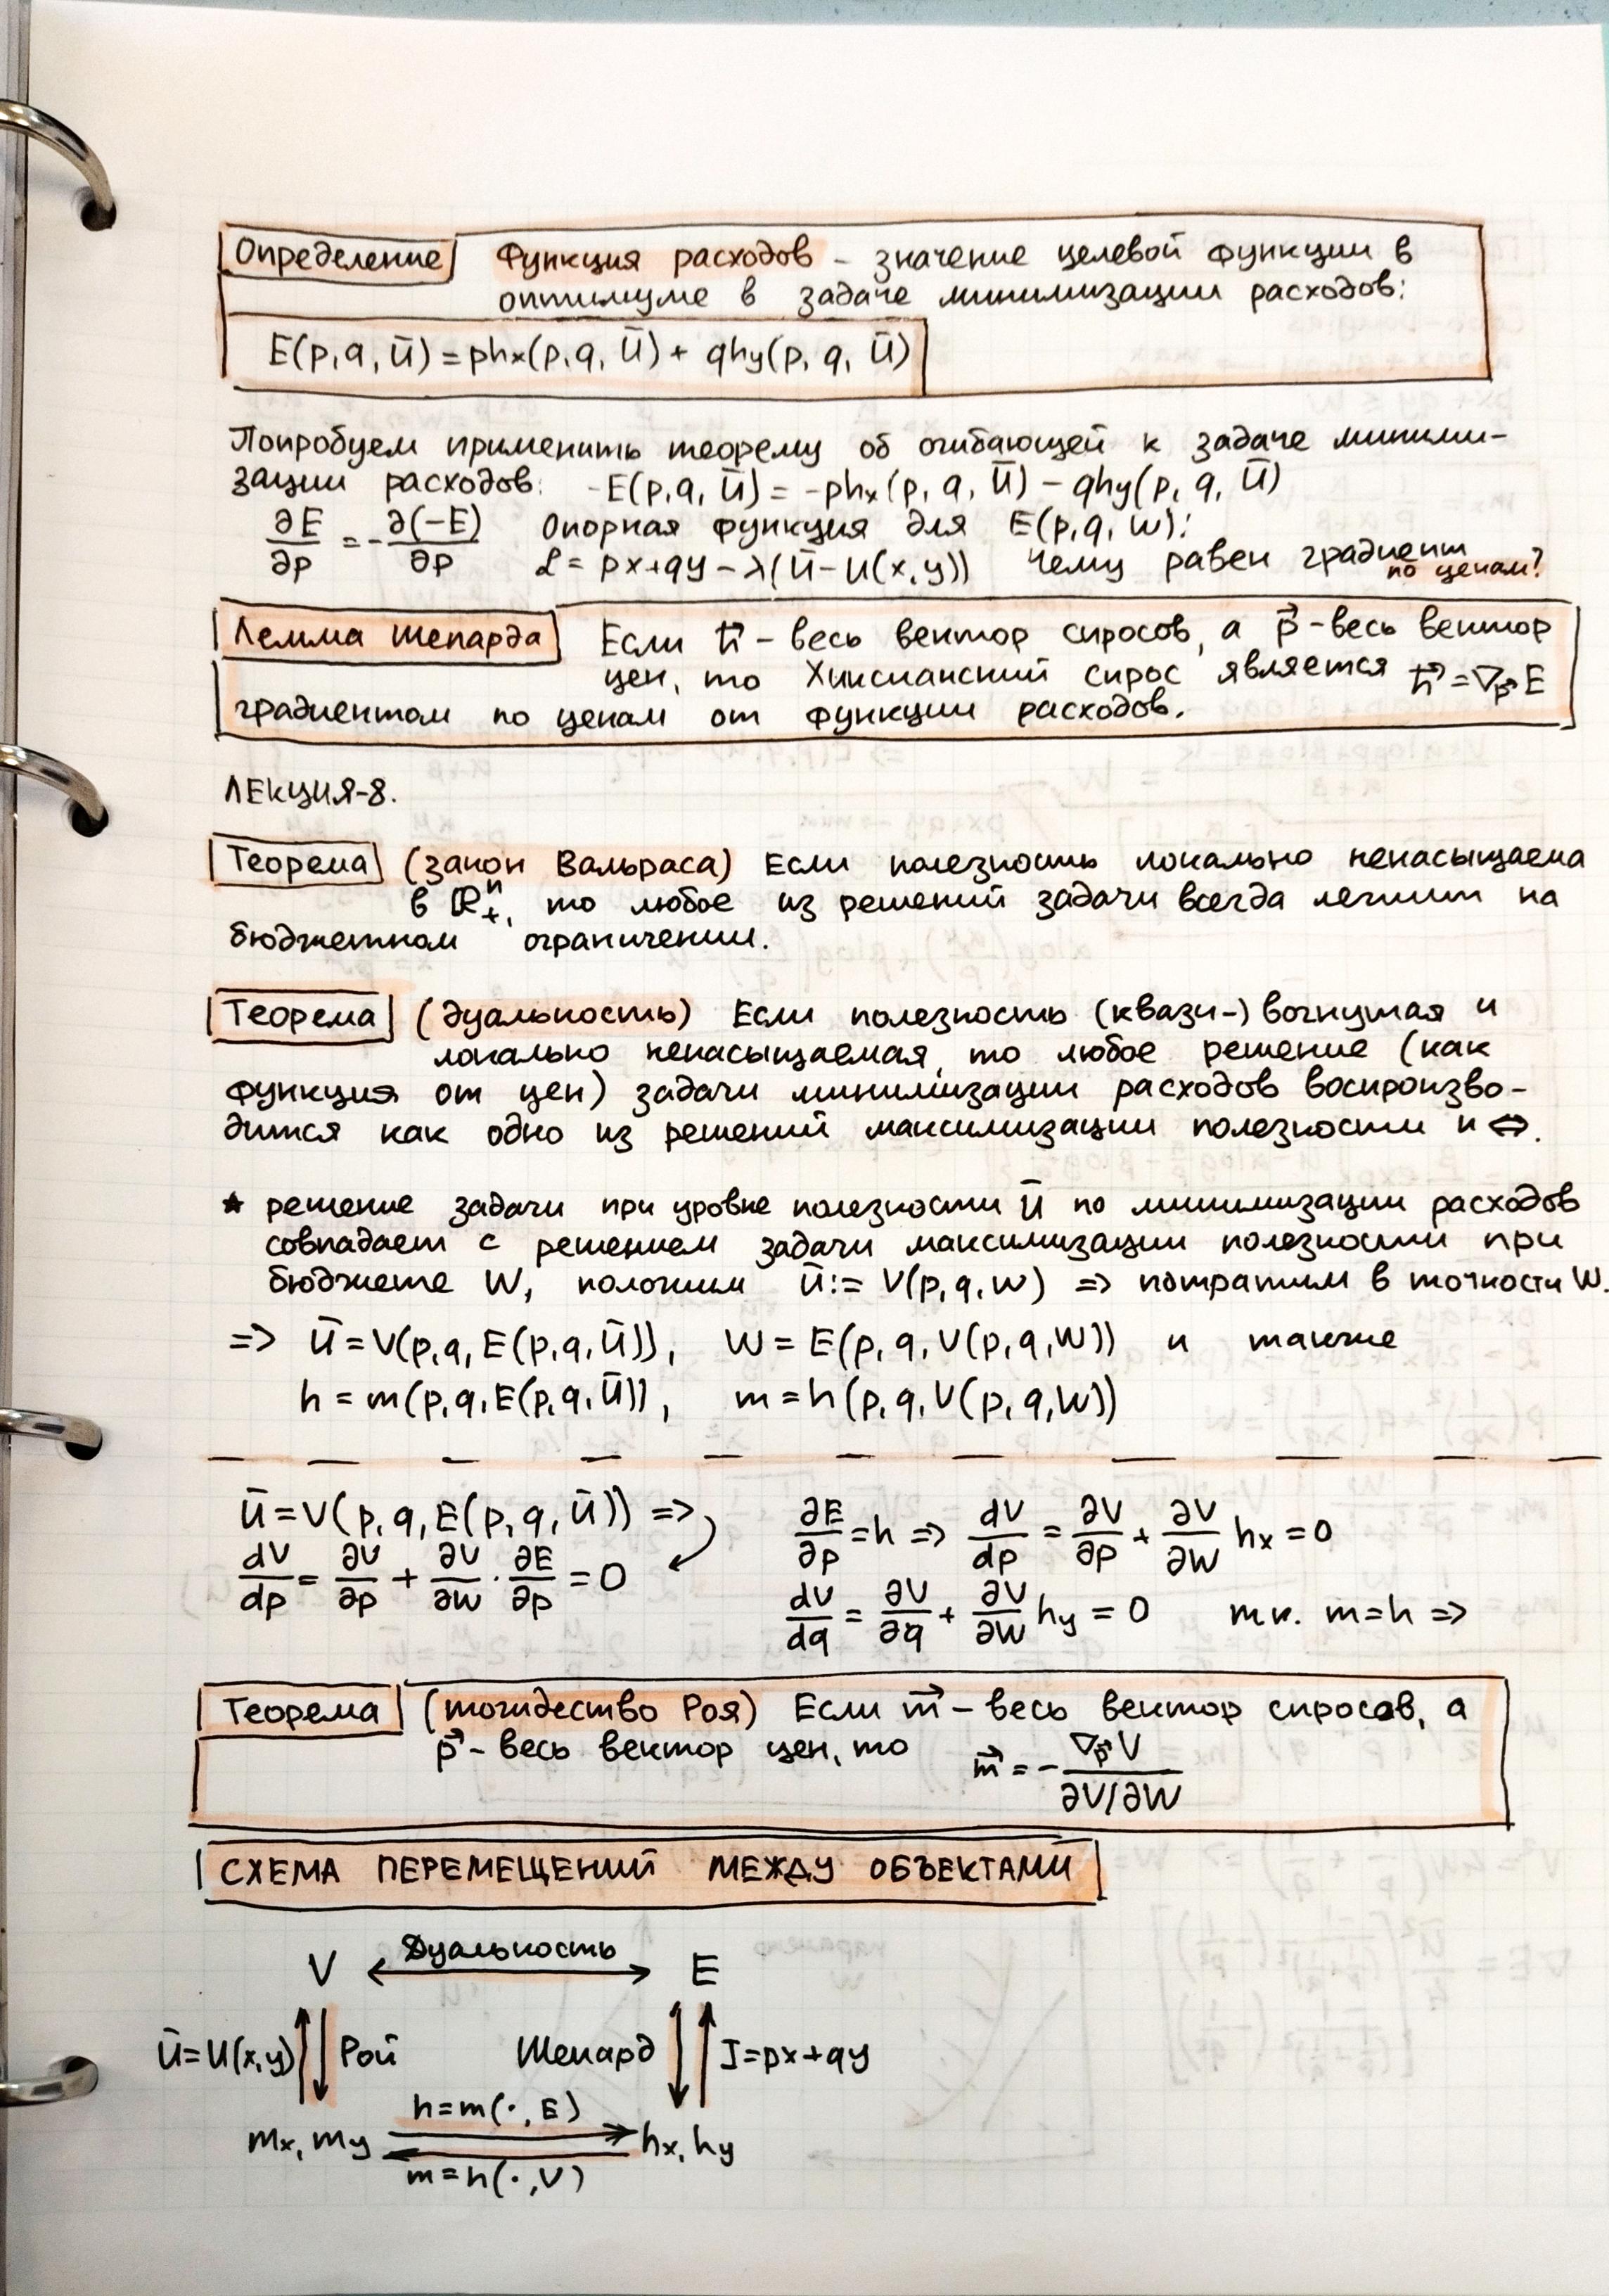 Определение Функция расходов - значение целевой функции в
оптимуме в задаче минимизации расходов:
E(p,q,ū) = phx(p,q,ū) + qhy(p,q,ū)
Попробуем применить теорему об огибающей к задаче миними-
зации расходов: -E(p,q,ū) = -phx(p,q,ū) - qhy(p,q,ū)
∂E/∂p = -∂(-E)/∂p Опорная функция для E(p,q,w):
ℒ = px+qy-λ(ū-u(x,y)) Чему равен градиент по ценам?
Лемма Шепарда Если h⃗ - весь вектор спросов, а p⃗ - весь вектор
цен, то Хиксианский спрос является h⃗ = ∇p⃗ E
градиентом по ценам от функции расходов.
ЛЕКЦИЯ-8.
Теорема (закон Вальраса) Если полезность локально ненасыщаема
в ℝⁿ₊, то любое из решений задачи всегда лежит на
бюджетном ограничении.
Теорема (дуальность) Если полезность (квази-) вогнутая и
локально ненасыщаемая, то любое решение (как
функция от цен) задачи минимизации расходов воспроизво-
дится как одно из решений максимизации полезности и ⇔.
★ решение задачи при уровне полезности ū по минимизации расходов
совпадает с решением задачи максимизации полезности при
бюджете W, положим ū := V(p,q,w) => потратим в точности W.
=> ū = V(p,q,E(p,q,ū)), W = E(p,q,V(p,q,W)) и также
h = m(p,q,E(p,q,ū)), m = h(p,q,V(p,q,W))
ū = V(p,q,E(p,q,ū)) =>
dV/dp = ∂V/∂p + ∂V/∂W · ∂E/∂p = 0
∂E/∂p = h => dV/dp = ∂V/∂p + ∂V/∂W hx = 0
dV/dq = ∂V/∂q + ∂V/∂W hy = 0 т.к. m=h =>
Теорема (тождество Роя) Если m⃗ - весь вектор спросов, а
p⃗ - весь вектор цен, то m⃗ = - ∇p⃗ V / ∂V/∂W
СХЕМА ПЕРЕМЕЩЕНИЙ МЕЖДУ ОБЪЕКТАМИ
V Дуальность E
ū=u(x,y) Рой Шепард I=px+qy
h=m(·,E)
mx, my hx, hy
m=h(·,V)